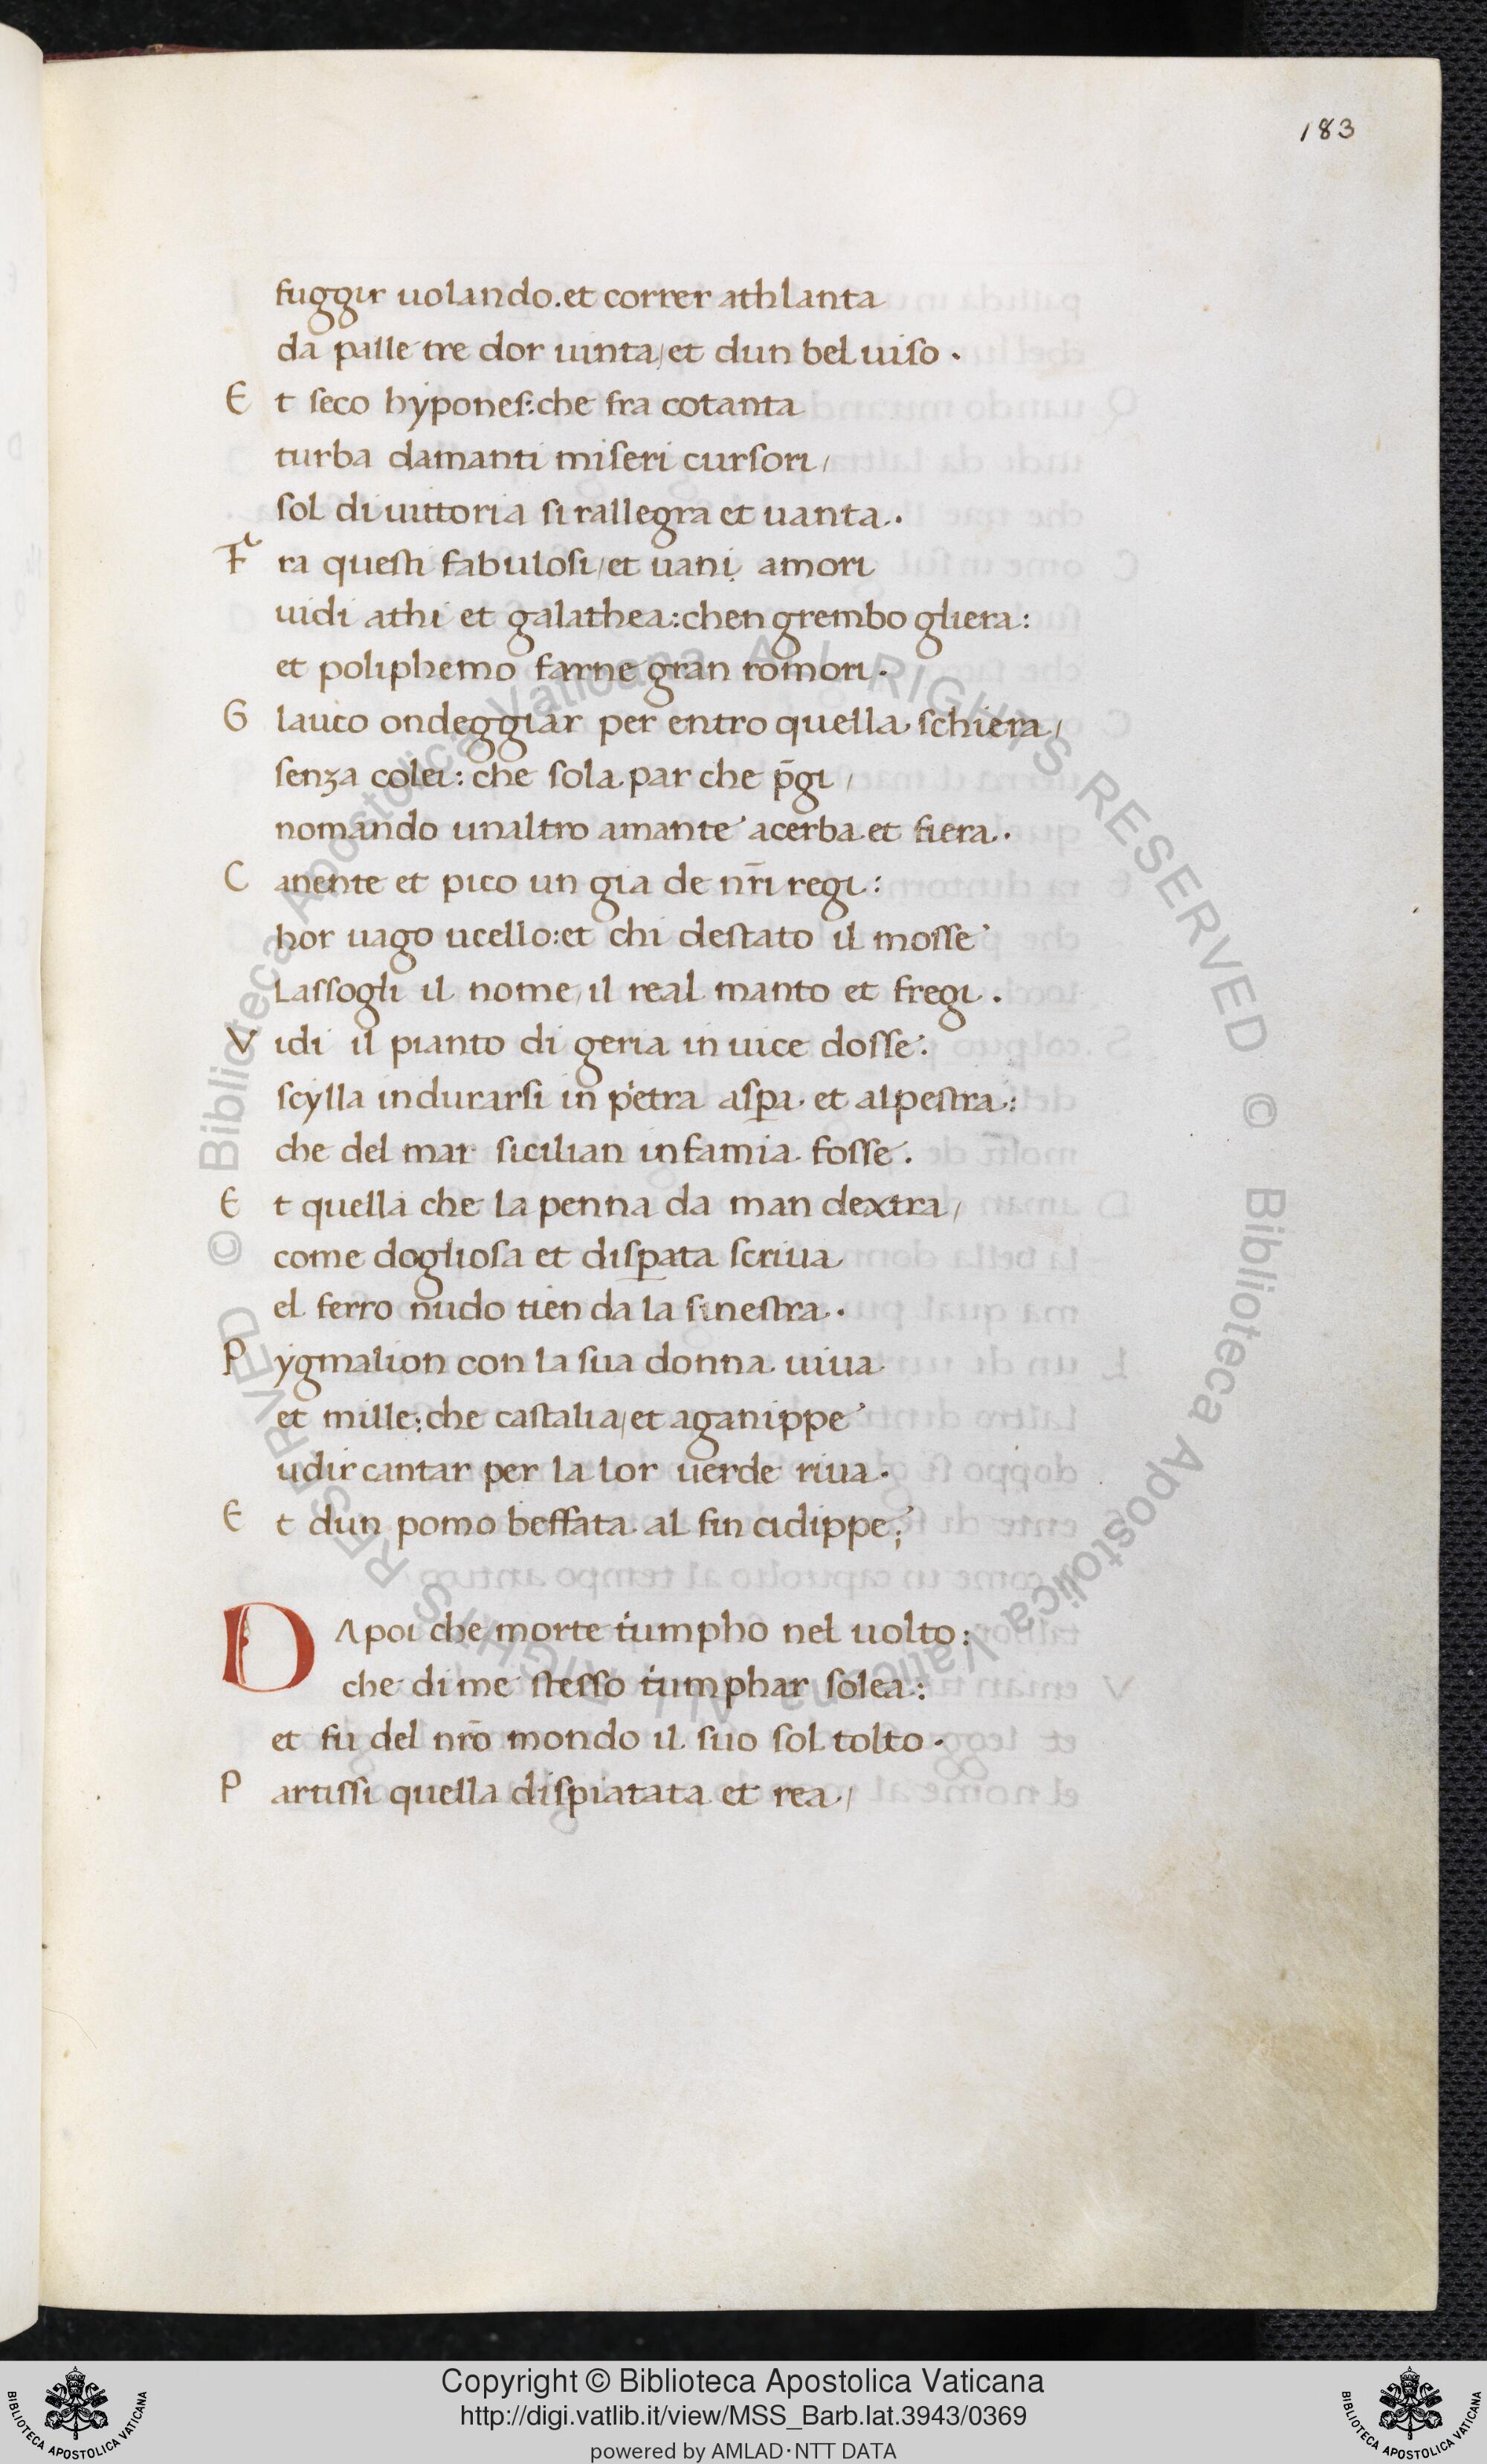 183
fuggir uolando.et correr athlanta
da palle tre dor uinta/et dun bel uiso.
E t seco hypones:che fra cotanta
turba damanti miseri cursori/
sol di uittoria si rallegra et uanta.
F ra questi fabulosi/et uani amori
uidi athi et galathea:chen grembo gliera:
et poliphemo farne gran romori.
G lauco ondeggiar per entro quella schiera/
senza colei: che sola par che p̄gi/
nomando unaltro amante acerba et fiera.
C anente et pico un gia de nr̄i regi:
hor uago ucello:et chi destato il mosse
Lassogli il nome/il real manto et fregi.
V idi il pianto di geria in uice dosse.
scylla indurarsi in petra asꝑa et alpestra:
che del mar sicilian infamia fosse.
E t quella che la penna da man dextra/
come dogliosa et disꝑata scriua
el ferro nudo tien da la sinestra.
P ygmalion con la sua donna uiua
et mille:che castalia/et aganippe
udir cantar per la lor uerde riua.
E t dun pomo beffata al fin cidippe;
D Apoi che morte tiumpho nel uolto:
che di me stesso tiumphar solea:
et fu del nr̄o mondo il suo sol tolto.
P artissi quella dispiatata et rea/
© Biblioteca Apostolica Vaticana ALL RIGHTS RESERVED © Biblioteca Apostolica Vaticana ALL RIGHTS RESERVED
Copyright © Biblioteca Apostolica Vaticana
http://digi.vatlib.it/view/MSS_Barb.lat.3943/0369
powered by AMLAD·NTT DATA
BIBLIOTECA APOSTOLICA VATICANA
BIBLIOTECA APOSTOLICA VATICANA